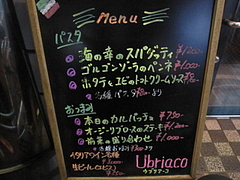 Menu
パスタ
海の幸のスパゲッティ ¥1,200
ゴルゴンゾーラのペンネ ¥1,000
ホタテとエビのトマトクリームソース
おつまみ
本日のカルパッチョ ¥750
オージーリブロースのステーキ ¥1,200
前菜の盛り合わせ ¥1,000
イタリアワイン各種
生ビール
Ubriaco
ウブリアーコ